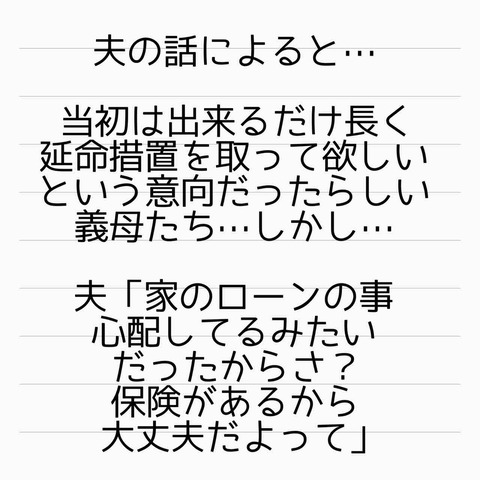 夫の話によると…
当初は出来るだけ長く
延命措置を取って欲しい
という意向だったらしい
義母たち…しかし…
夫「家のローンの事
心配してるみたい
だったからさ？
保険があるから
大丈夫だよって」